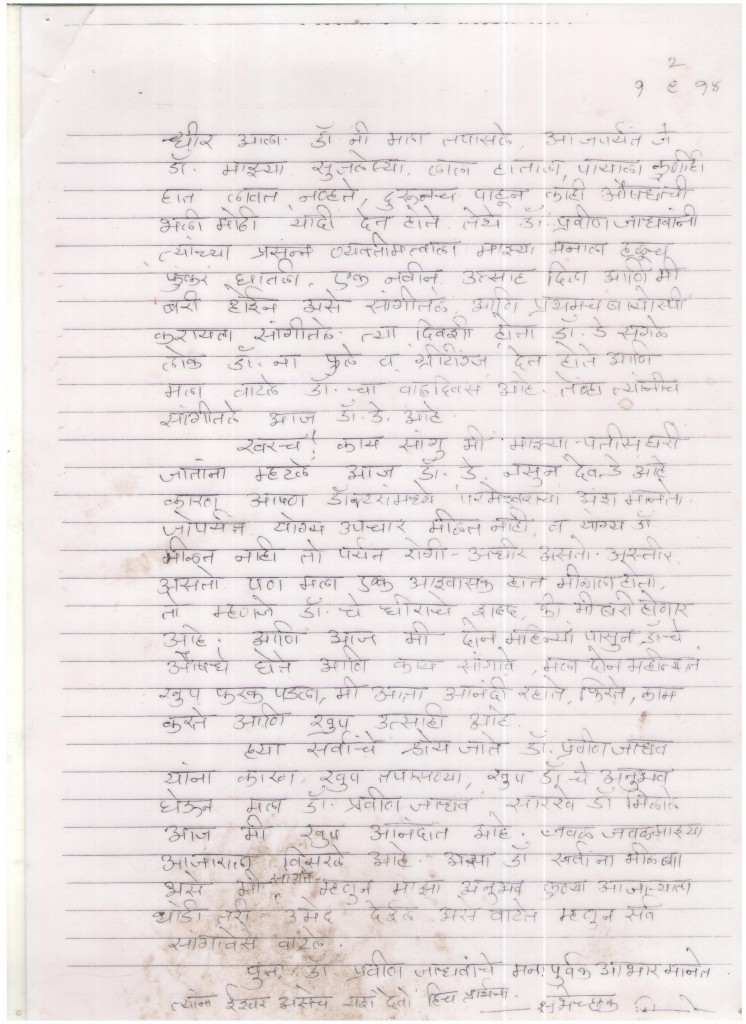 2
१ ८ १४
धीर आला. डॉ. नी मला तपासले, आजपर्यंत जे
डॉ. माझ्या सुजलेल्या, लाल हाताला, पायाला कुणीही
हात लावत नव्हते, दुरूनच पाहून काही औषधांची
भली मोठी यादी देत होते. तेथे डॉ. प्रवीण जाधवांनी
त्यांच्या प्रसन्न व्यक्तीमत्वाला माझ्या मनाला हळूच
फुंकर घातली. एक नवीन उत्साह दिला आणि मी
बरी होईन असे सांगीतले आणि प्रथमच बायोप्सी
करायला सांगीतले. त्या दिवशी होता डॉ. डे सगळे
लोक डॉ. ना फुले व ग्रीटींग्ज देत होते आणि
मला वाटले डॉ. च्या वाढदिवस आहे. तेव्हा त्यांनीच
सांगीतले आज डॉ. डे. आहे.
खरंच! काय सांगु मी माझ्या पतीस घरी
जातांना म्हटले आज डॉ. डे. नसुन देव डे आहे
कारण आपण डॉक्टरांमध्ये परमेश्वराचा अंश मानतो.
जोपर्यंत योग्य उपचार मीळत नाही, व योग्य डॉ.
मीळत नाही तो पर्यंत रोगी - अधीर असतो. अस्तीर
असतो पण मला एक आश्वासक हात मीळाला होता.
तो म्हणजे डॉ. चे धीराचे शब्द, की मी बरी होणार
आहे. आणि आज मी दोन महिन्यां पासुन डॉ. चे
औषधे घेते आणि काय सांगावे, मला दोन महीन्यातं
खुप फरक पडला, मी आता आनंदी रहाते, फिरते, काम
करते आणि खुप उत्साही आहे.
ह्या सर्वांचे श्रेय जाते डॉ. प्रवीण जाधव
यांना कारण. खुप तपासण्या, खुप डॉ. चे अनुभव
घेऊन मला डॉ. प्रवीण जाधव सारखे डॉ. मिळाले
आज मी खुप आनंदात आहे. जवळ जवळ माझ्या
आजाराला विसरले आहे. अश्या डॉ सर्वांना मीळाव्या
असे मी सांगेन म्हणुन माझा अनुभव कुण्या आजाऱ्याला
थोडी तरी उमेद देईल असे वाटते म्हणुन सर्व
सांगावेसे वाटले.
पुन्हा डॉ. प्रवीण जाधवांचे मनःपुर्वक आभार मानते.
त्यांना ईश्वर असेच यश देवो हिच प्रार्थना.
शुभेच्छुक